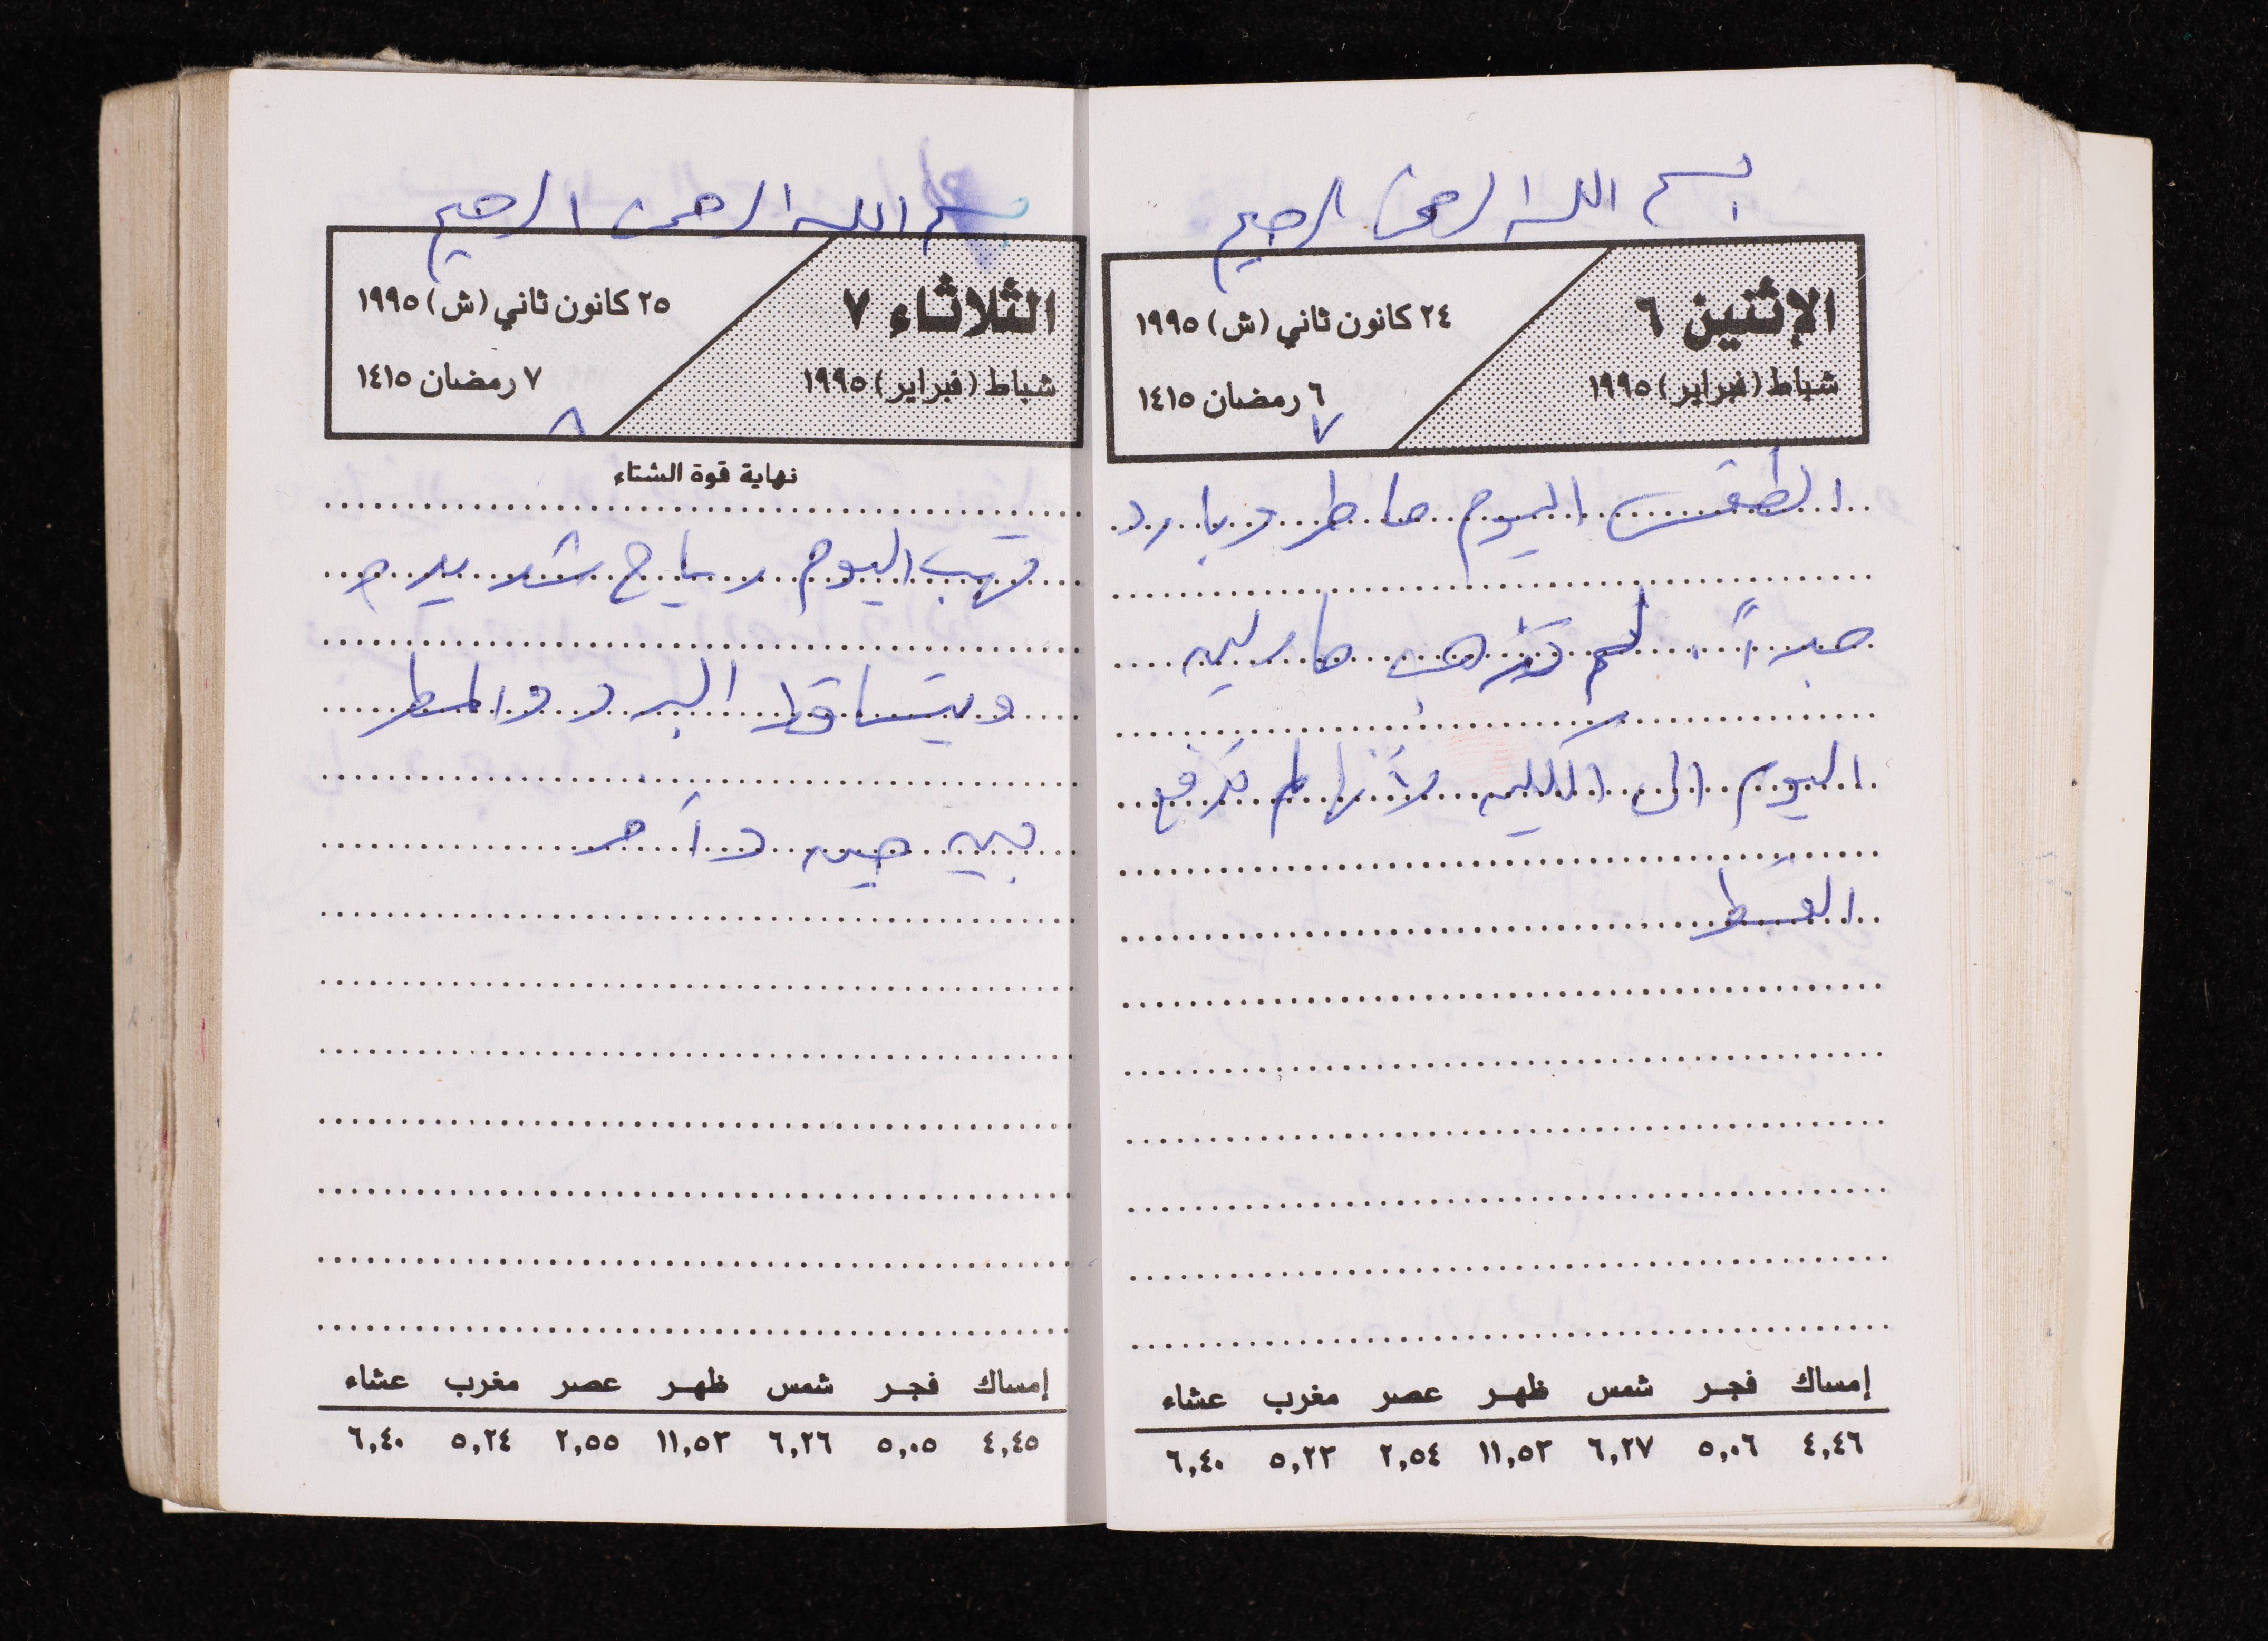 بسم الله الرحمن الرحيم
الإثنين ٦
شباط (فبراير) ١٩٩٥
٢٤ كانون ثاني (ش) ١٩٩٥
٦ رمضان ١٤١٥
٧
الطقس اليوم ماطر وبارد
جداً. لم تذهب مارلين
اليوم الى الكلية لأنها لم تدفع
القسط
إمساك فجر شمس ظهر عصر مغرب عشاء
٤,٤٦ ٥,٠٦ ٦,٢٧ ١١,٥٣ ٢,٥٤ ٥,٢٣ ٦,٤٠
بسم الله الرحمن الرحيم
الثلاثاء ٧
شباط (فبراير) ١٩٩٥
٢٥ كانون ثاني (ش) ١٩٩٥
٧ رمضان ١٤١٥
٨
نهاية قوة الشتاء
تهب اليوم رياح شديدة
ويتساقط البرد والمطر
بين حين وآخر
إمساك فجر شمس ظهر عصر مغرب عشاء
٤,٤٥ ٥,٠٥ ٦,٢٦ ١١,٥٣ ٢,٥٥ ٥,٢٤ ٦,٤٠